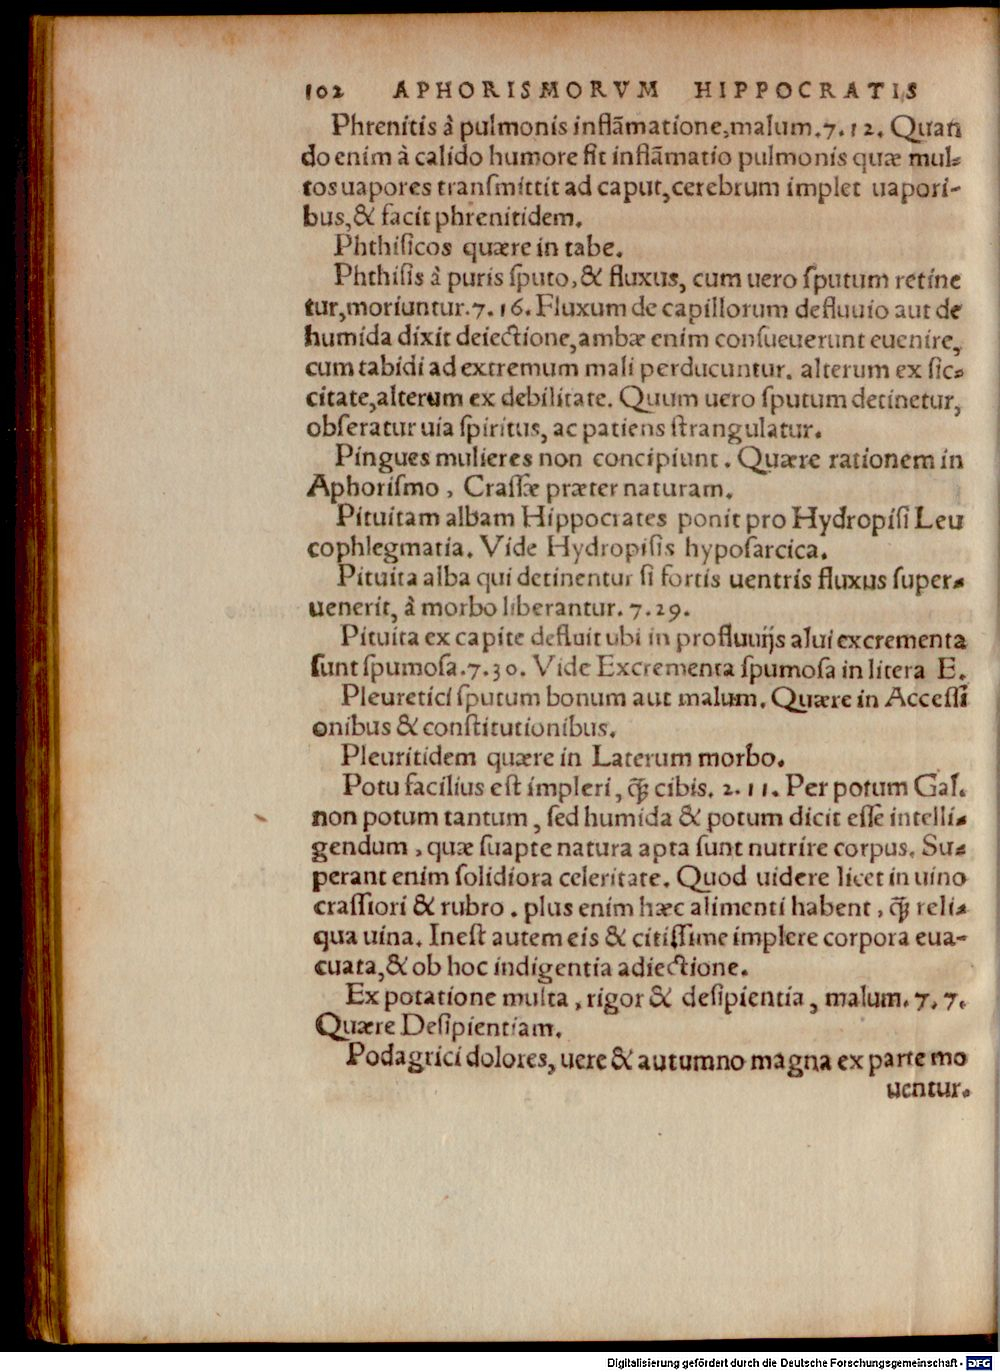 102 APHORISMORVM HIPPOCRATIS
Phrenitis à pulmonis inflãmatione,malum.7.12. Quan
do enim à calido humore fit inflãmatio pulmonis quæ mul-
tos uapores transmittit ad caput,cerebrum implet uapori-
bus,& facit phrenitidem.
Phthisicos quære in tabe.
Phthisis à puris sputo,& fluxus, cum uero sputum retine
tur,moriuntur.7.16.Fluxum de capillorum defluuio aut de
humida dixit deiectione,ambæ enim consueuerunt euenire,
cum tabidi ad extremum mali perducuntur. alterum ex sic-
citate,alterum ex debilitate. Quum uero sputum detinetur,
obseratur uia spiritus, ac patiens strangulatur.
Pingues mulieres non concipiunt. Quære rationem in
Aphorismo, Crassæ præter naturam.
Pituitam albam Hippocrates ponit pro Hydropisi Leu
cophlegmatia. Vide Hydropisis hyposarcica.
Pituita alba qui detinentur si fortis uentris fluxus super-
uenerit, à morbo liberantur. 7.29.
Pituita ex capite defluit ubi in profluuijs alui excrementa
sunt spumosa.7.30. Vide Excrementa spumosa in litera E.
Pleuretici sputum bonum aut malum. Quære in Accessi
onibus & constitutionibus.
Pleuritidem quære in Laterum morbo.
Potu facilius est impleri, q̃ cibis. 2.11. Per potum Gal.
non potum tantum, sed humida & potum dicit esse intelli-
gendum, quæ suapte natura apta sunt nutrire corpus. Su-
perant enim solidiora celeritate. Quod uidere licet in uino
crassiori & rubro. plus enim hæc alimenti habent, q̃ reli-
qua uina. Inest autem eis & citissime implere corpora eua-
cuata,& ob hoc indigentia adiectione.
Ex potatione multa, rigor & desipientia, malum. 7.7.
Quære Desipientiam.
Podagrici dolores, uere & autumno magna ex parte mo
uentur.
Digitalisierung gefördert durch die Deutsche Forschungsgemeinschaft - DFG